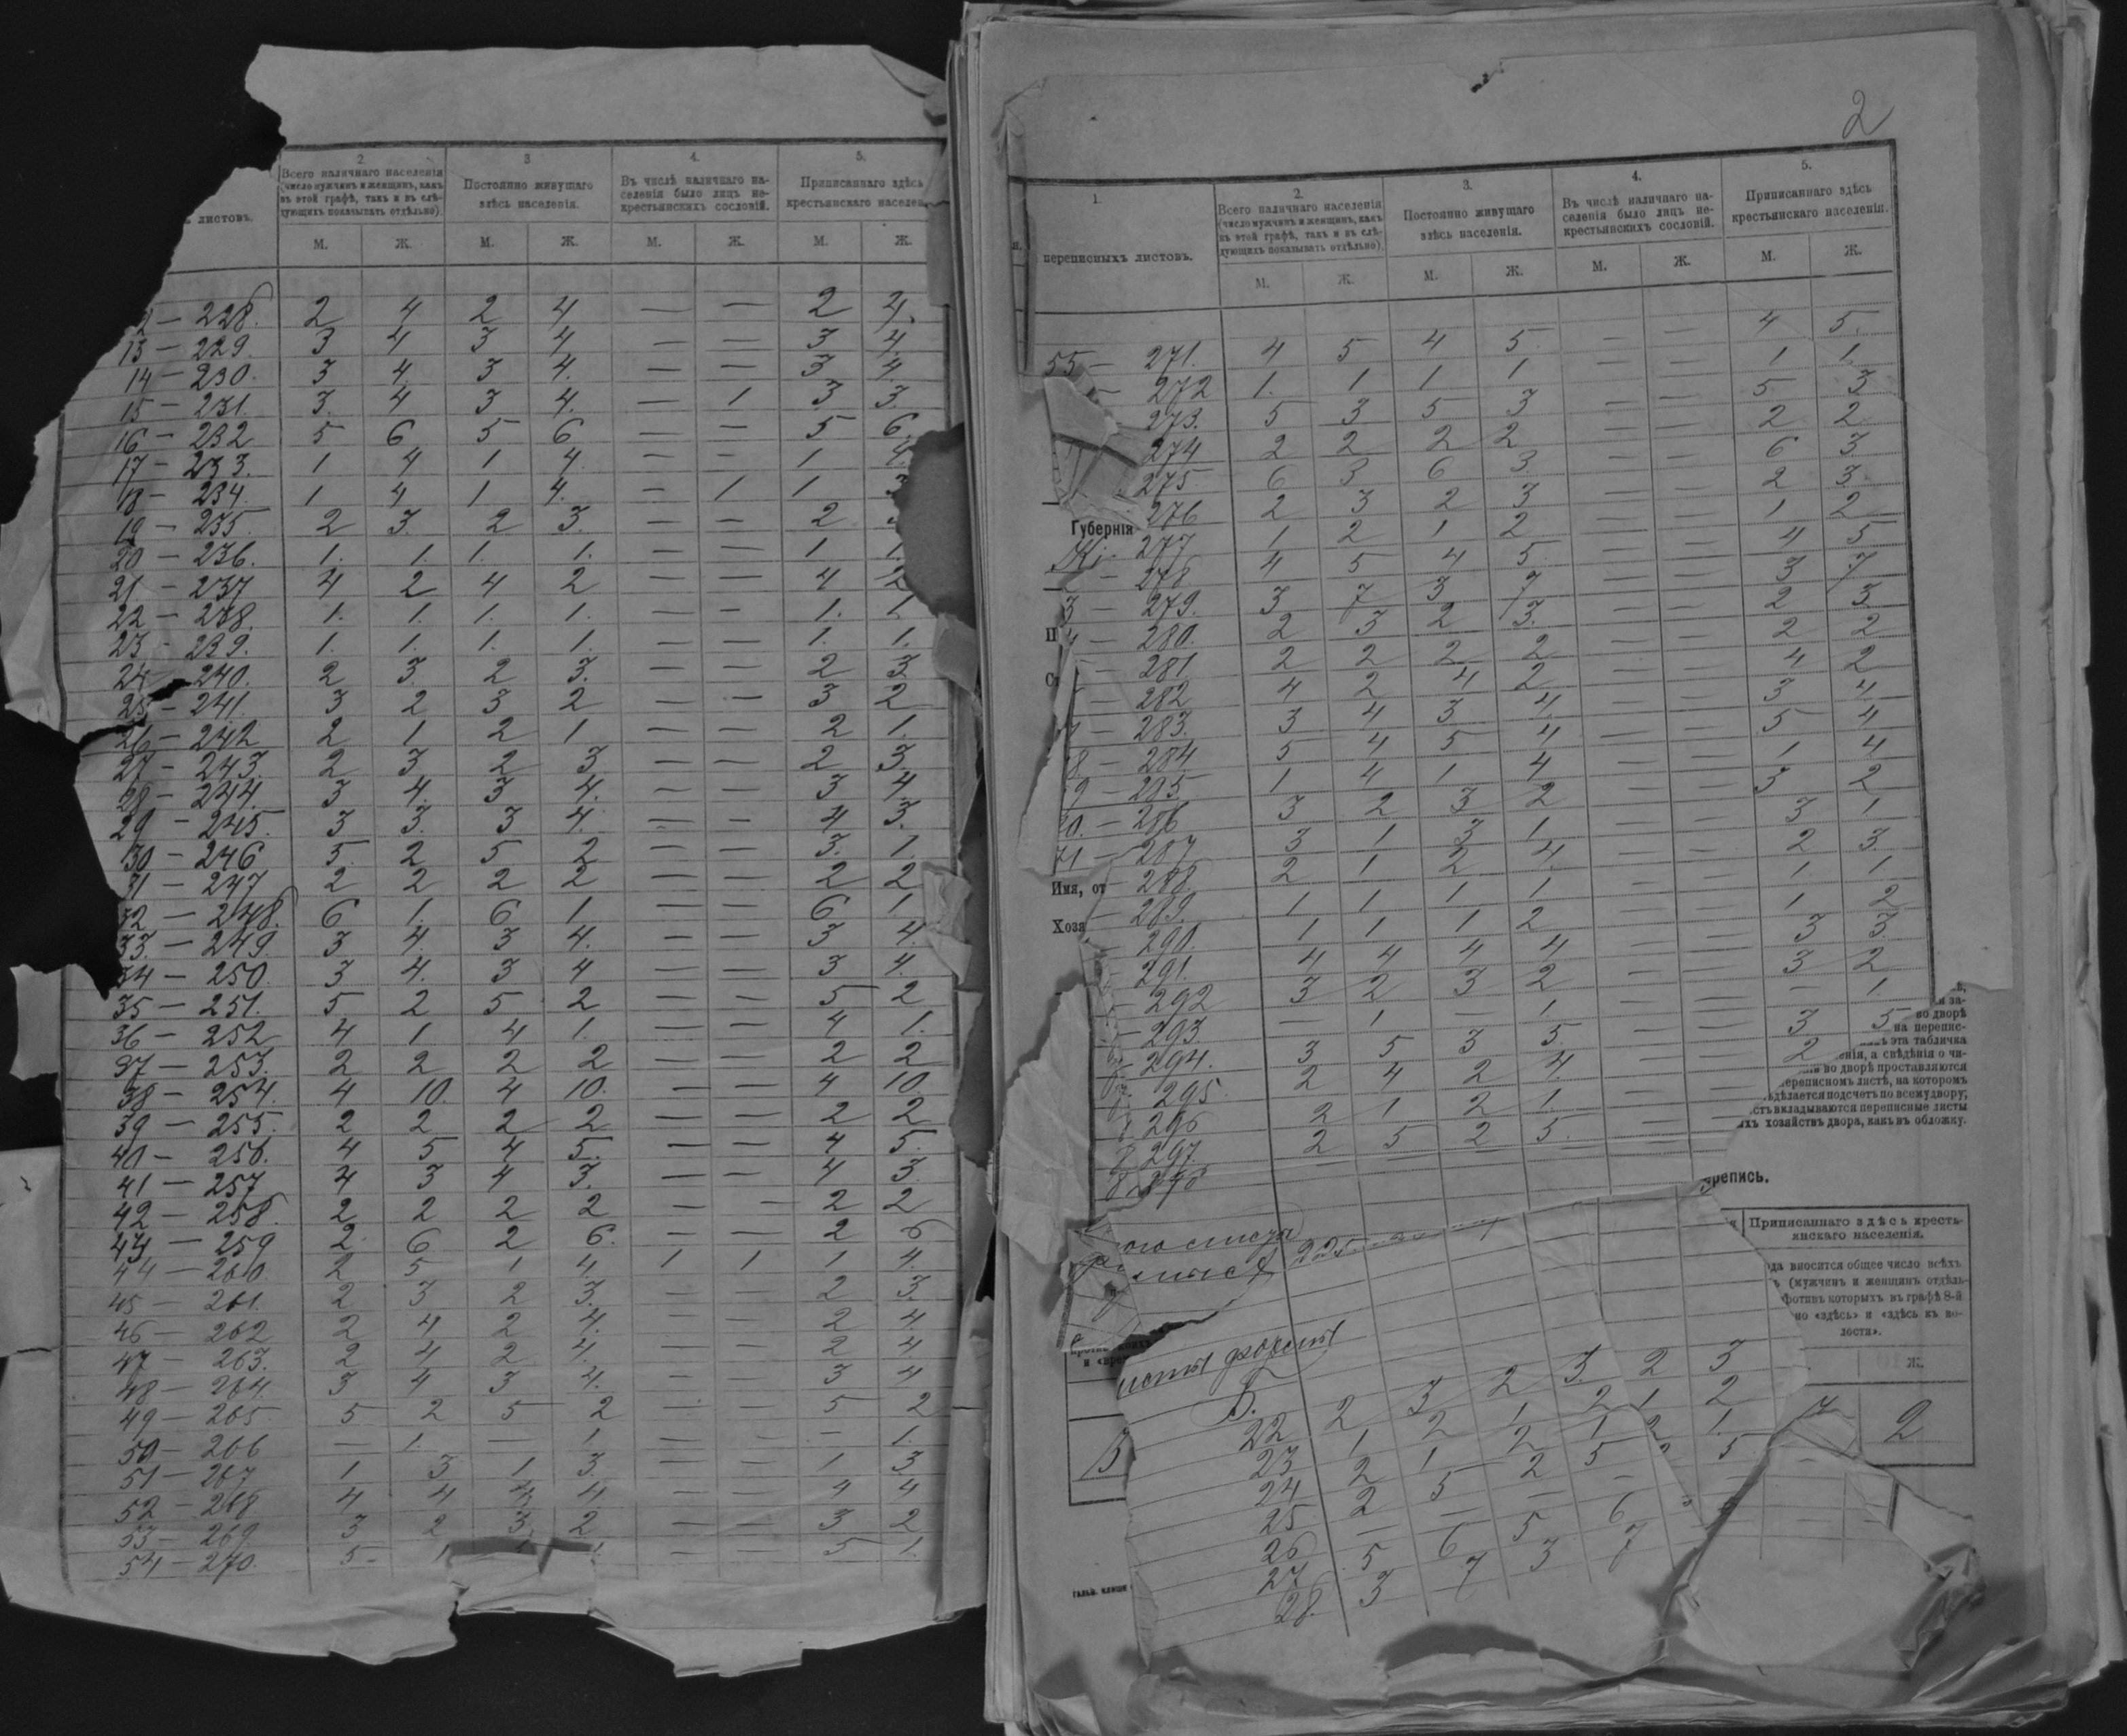 2. 3. 4. 5.
листовъ. Всего наличнаго населенія (число мужчинъ и женщинъ, какъ въ этой графѣ, такъ и въ слѣдующихъ показывать отдѣльно). Постоянно живущаго здѣсь населенія. Въ числѣ наличнаго населенія было лицъ некрестьянскихъ сословій. Приписаннаго здѣсь крестьянскаго населен
М. Ж. М. Ж. М. Ж. М. Ж.
2 — 228. 2 4 2 4 — — 2 4.
13 — 229. 3 4 3 4 — — 3 4.
14 — 230. 3 4. 3 4. — — 3 4.
15 — 231. 3. 4 3 4. — 1 3 3.
16 — 232 5 6 5 6 — — 5 6.
17 — 233. 1 4 1 4. — — 1 4.
18 — 234. 1 4 1 4. — 1 1 3
19 — 235. 2 3. 2 3. — — 2
20 — 236. 1. 1. 1. 1. — — 1 1.
21 — 237 4 2 4 2 — — 4 2
22 — 238. 1. 1. 1. 1. — — 1. 1
23 — 239. 1. 1. 1. 1. — — 1. 1.
24 — 240. 2 3 2 3. — — 2 3
25 — 241. 3 2 3 2 — — 3 2
26 — 242 2 1 2 1 — — 2 1.
27 — 243. 2 3 2 3 — — 2 3.
28 — 244. 3 4. 3 4. — — 3 4
29 — 245. 3 3. 3 4. — — 4 3.
30 — 246 5. 2 5 2 — — 3. 1.
31 — 247 2 2 2 2 — — 2 2
32 — 248. 6 1. 6 1 — — 6 1.
33. — 249. 3 4. 3 4. — — 3 4.
34 — 250. 3 4. 3 4 — — 3 4.
35 — 251. 5 2 5 2 — — 5 2
36 — 252 4 1 4 1. — — 4 1.
37 — 253. 2 2 2 2 — — 2 2
38 — 254. 4 10. 4 10. — — 4 10.
39 — 255. 2 2 2 2 — — 2 2
40 — 256. 4 5 4 5. — — 4 5.
41 — 257 4 3 4 3. — — 4 3.
42 — 258. 2 2 2 2 — — 2 2
43 — 259 2. 6 2 6. — — 2 6
44 — 260. 2 5 1 4. 1 1 1 4.
45 — 261. 2 3 2 3. — — 2 3.
46 — 262 2 4 2 4. — — 2 4
47 — 263. 2 4 2 4. — — 2 4
48 — 264. 3 4 3 4. — 3 4
49 — 265. 5 2 5 2 — — 5 2
50 — 266 — 1. — 1 — — — 1.
51 — 267 1 3 1 3. — — 1 3
52 — 268 4 4 4 4. — — 4 4
53 — 269 3 2 3 2 — — 3 2
54 — 270. 5 1 — — 5 1.
2
1. 2. 3. 4. 5.
переписныхъ листовъ. Всего наличнаго населенія (число мужчинъ и женщинъ, какъ въ этой графѣ, такъ и въ слѣдующихъ показывать отдѣльно). Постоянно живущаго здѣсь населенія. Въ числѣ наличнаго населенія было лицъ некрестьянскихъ сословій. Приписаннаго здѣсь крестьянскаго населенія.
М. Ж. М. Ж. М. Ж. М. Ж.
55 — 271. 4 5 4 5. — — 4 5.
— 272 1. 1 1 1 — — 1 1.
273. 5 3 5 3 — — 5 3
274 2 2 2 2 — — 2 2
275 6 3 6 3. — — 6 3
276 2 3 2 3 — — 2 3.
Губернія
277 1 2 1 2 — — 1 2
— 278. 4 5 4 5. — — 4 5
3 — 279. 3 7 3 7 — — 3 7
4 — 280. 2 3 2 3. — — 2 3.
281 2 2 2 2 — — 2 2
— 282 4 2 4 2 — — 4 2
7 — 283. 3 4 3 4. — — 3 4
8 — 284 5 4 5 4 — — 5 4
9 — 295 1 4 1 4 — — 1 4
0. — 286 3 2 3 2 — — 3 2
71 — 287 3 1 3 1 — — 3 1
Имя, от
— 288. 2 1 2 4. — — 2 3.
— 289. 1 1 1 1. — — 1 1
Хозя
290. 1 1 1 2 — — 1 2
291. 4 4 4 4 — — 3 3
— 292 3 2 3 2 — — 3 2
— 293. — 1 — 1 — — — 1.
— 294. 3 5 3 5. — — 3 5
— 295. 2 4 2 4. — — 2
296 2 1 2 1. —
297. 2 5 2 5. —
во дворѣ
на перепис-
эта табличка
енія, а свѣдѣнія о чи-
во дворѣ проставляются
ереписномъ листѣ, на которомъ
дѣлается подсчетъ по всему двору;
стъ вкладываются переписные листы
ихъ хозяйствъ двора, какъ въ обложку.
репись.
Приписаннаго здѣсь кресть-
янскаго населенія.
да вносится общее число всѣхъ
ъ (мужчинъ и женщинъ отдѣль-
ротивъ которыхъ въ графѣ 8-й
но «здѣсь» и «здѣсь къ во-
лости».
Ж.
2
225
исты формы
Б.
22 2 3 2 3. 2 3
23 1 2 1 2 1 2
24 2 1 2 1 2 1.
25 2 5 2 5 2 5.
26 — — — —
27 5 6 5 6
28. 3 7 3 7